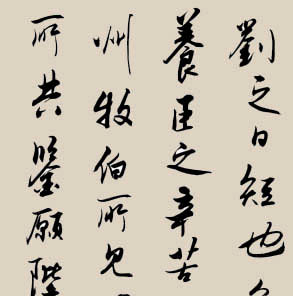 劉之日短也
養臣之辛苦
州牧伯所見
所共鑒願陛